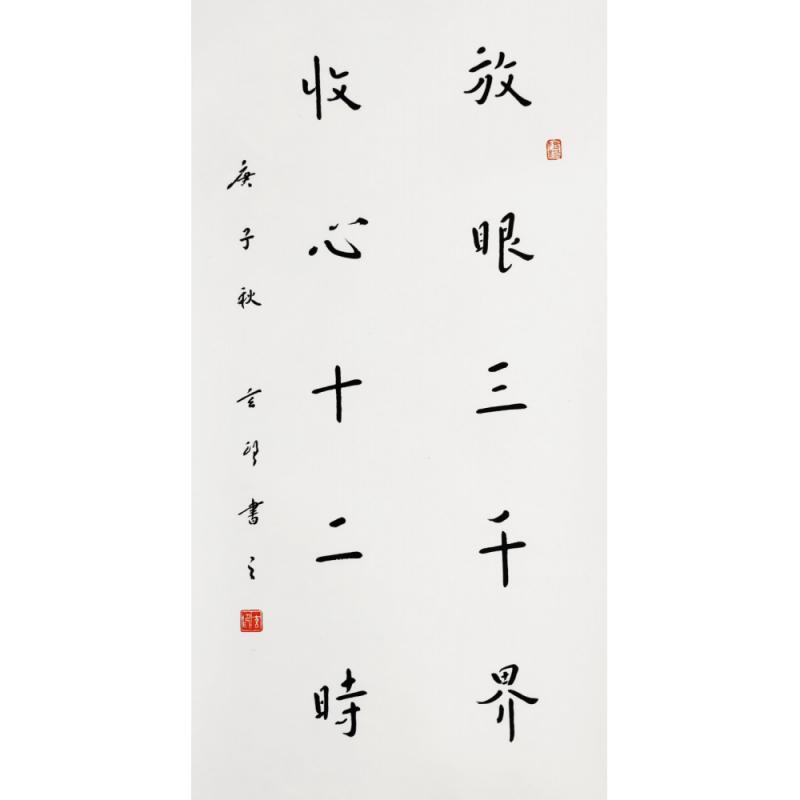 放眼三千界
收心十二時
庚子秋 玄 書之